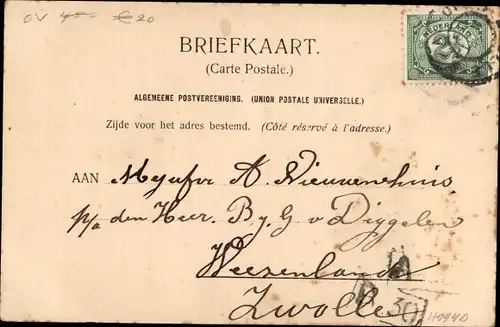 OV € 20
NEDERLAND
BRIEFKAART.
(Carte Postale.)
ALGEMEENE POSTVEREENIGING. (UNION POSTALE UNIVERSELLE.)
Zijde voor het adres bestemd. (Côté réservé à l'adresse.)
AAN Mejufvr A. Nieuwenhuis
p/a den Heer. B. y. G. v Diggelen
Weezenlanden
Zwolle
30